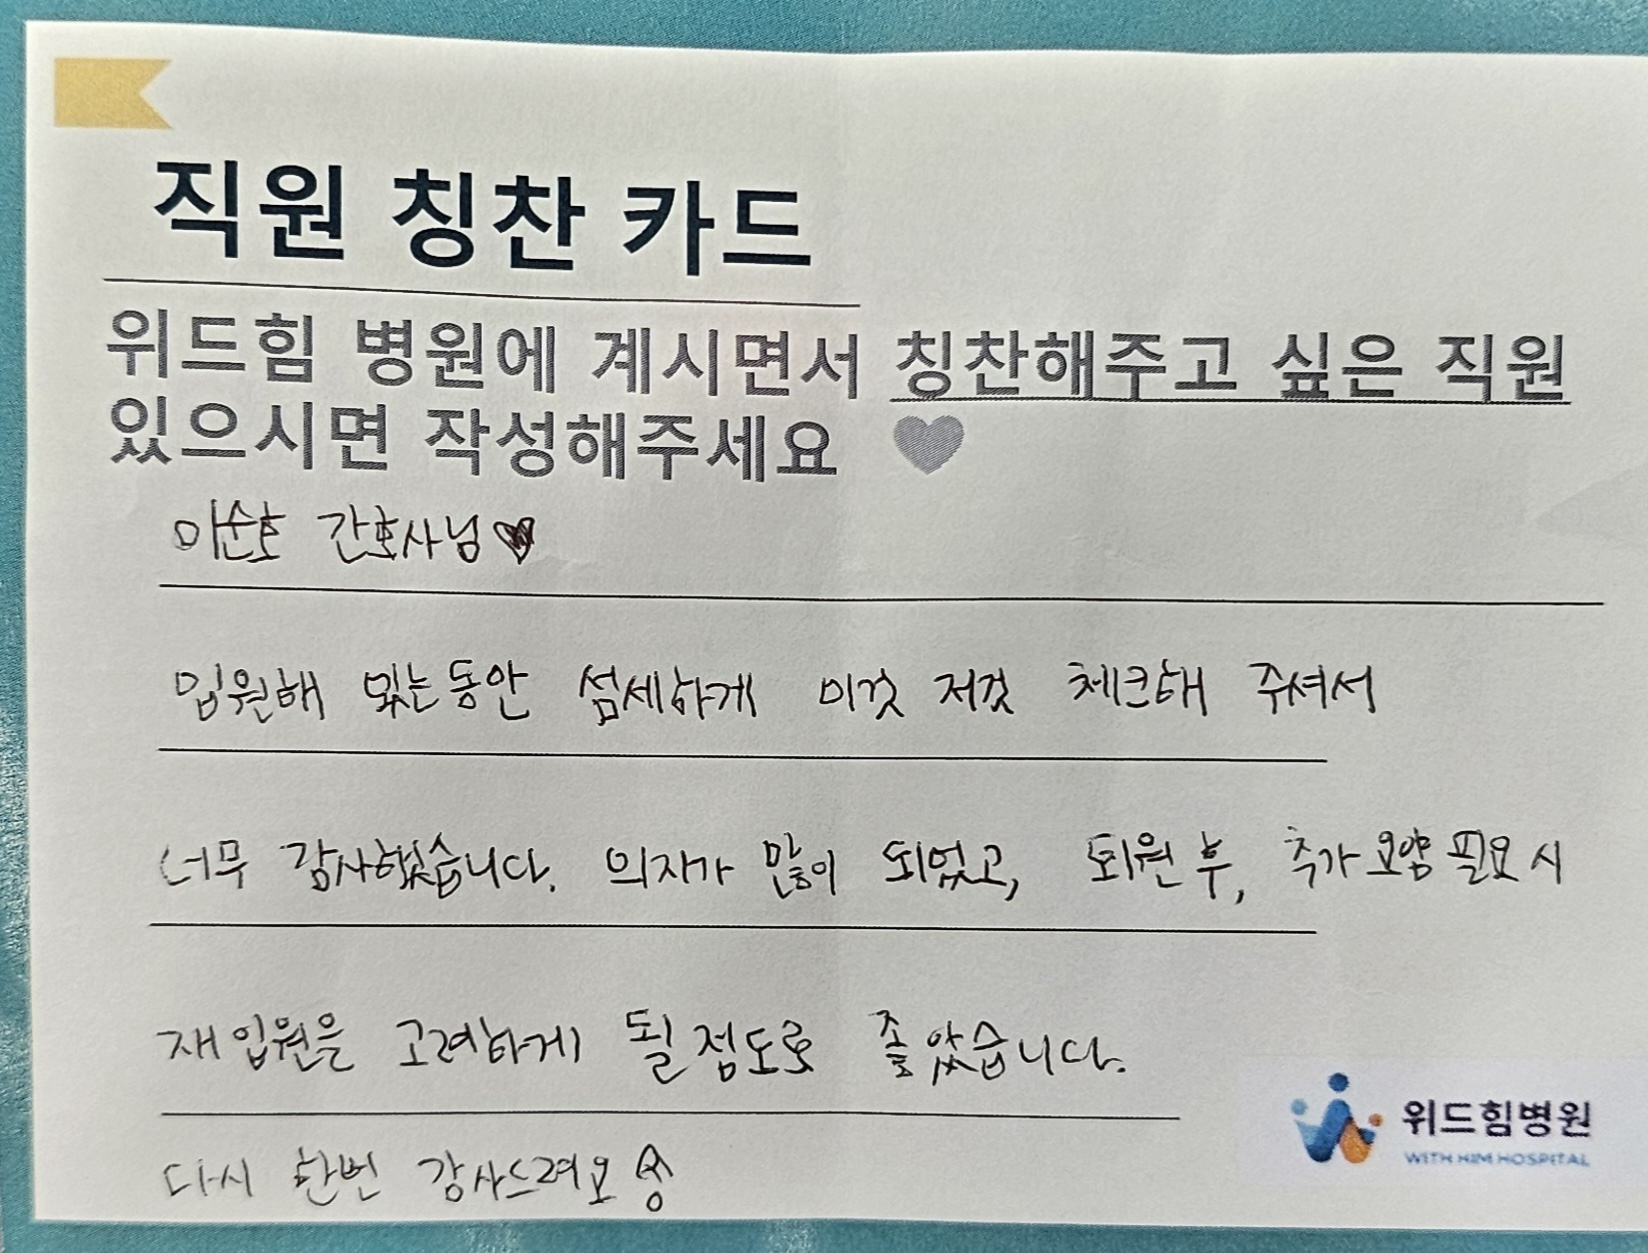 직원 칭찬 카드
위드힘 병원에 계시면서 칭찬해주고 싶은 직원
있으시면 작성해주세요 🩶
이순호 간호사님♥
입원해 있는동안 섬세하게 이것 저것 체크해 주셔서
너무 감사했습니다. 의지가 많이 되었고, 퇴원 후, 추가 요양 필요 시
재입원을 고려하게 될 정도로 좋았습니다.
다시 한번 감사드려요
위드힘병원
WITH HIM HOSPITAL